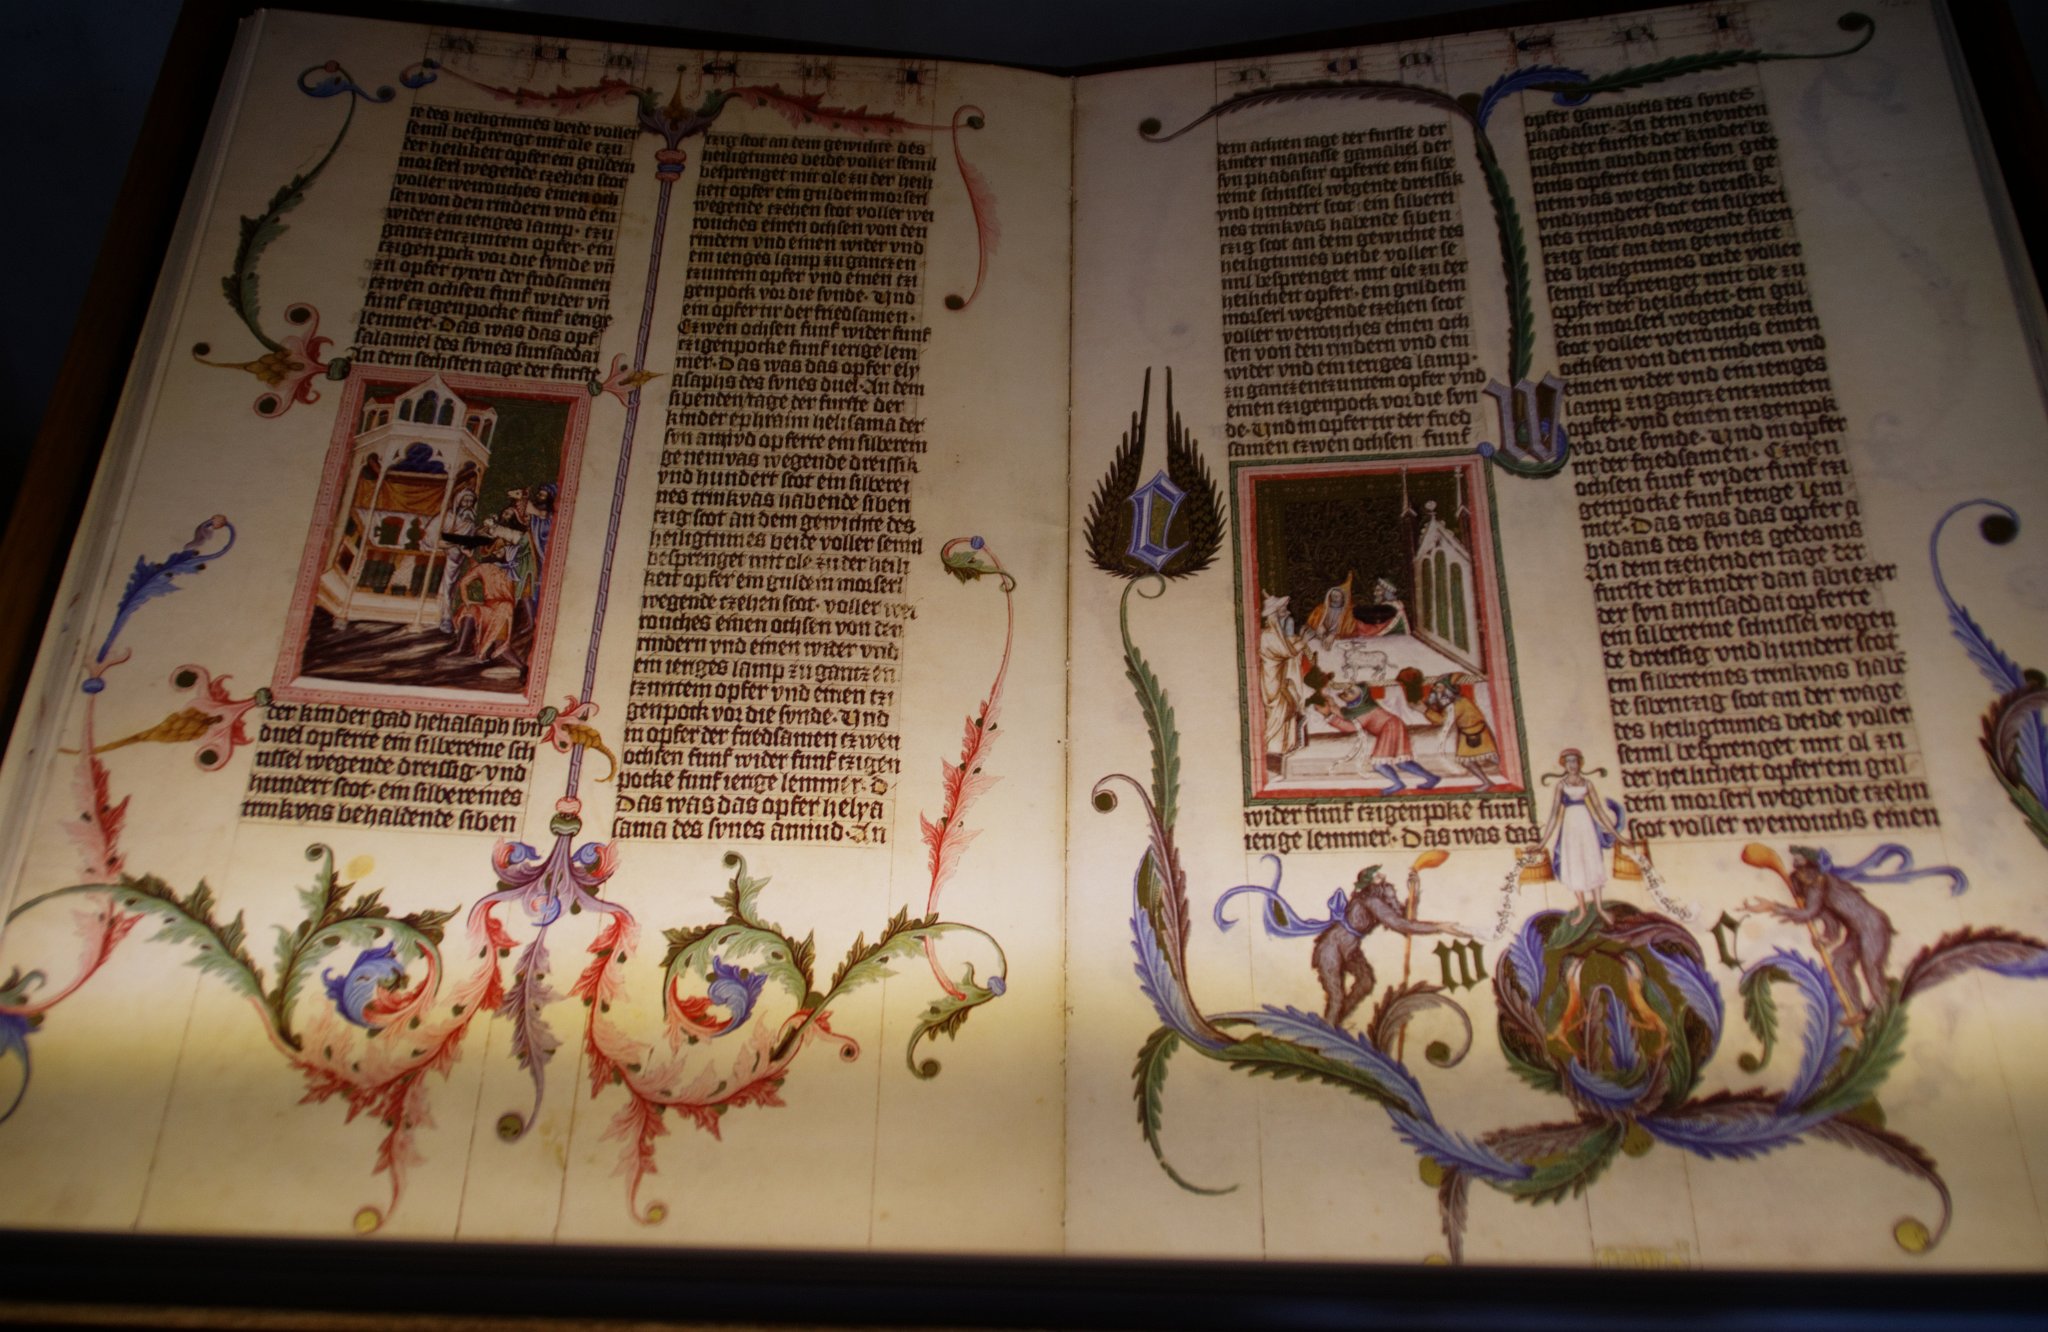 re des heiligtumes beide voller
semil besprengt mit ole tzu
der heilikeit opfer ein guldein
morserl wegende tzehen scot
voller weirouches einen och
sen von den rindern vnd ein
wider ein ieriges lamp · tzu
gantz entzuntem opfer · ein
tzigen pock vor die sunde vn
zu opfer tyren der fridsamen
tzwen ochsen funf wider vn
funf tzigenpocke funf ierige
lemmer · Das was das opf
salamiel des synes surisaddai
An dem sechsten tage der furste
der kinder gad heliasaph syn
duel opferte ein silbereine sch
ussel wegende dreissig · vnd
hundert scot · ein silbereines
trinkvas behaldende siben
tzig scot an dem gewichte des
heiligtumes beide voller semil
besprenget mit ole zu der heili
keit opfer ein guldein morserl
wegende tzehen scot voller wei
rouches einen ochsen von den
rindern vnd einen wider vnd
ein ieriges lamp zu gantzen
tzuntem opfer vnd einen tzi
genpock vor die sunde · Und
ein opfer tir der friedsamen ·
Czwen ochsen funf wider funf
tzigenpocke funf ierige lem
mer · Das was das opfer ely
asaphs des synes duel · An dem
sibenden tage der furste der
kinder ephraim helisama der
syn amiud opferte ein silberein
ge nemvas wegende dreissik
vnd hundert scot ein silberei
nes trinkvas habende siben
tzig scot an dem gewichte des
heiligtumes beide voller semil
besprenget mit ole zu der heili
keit opfer ein guldein morserl
wegende tzehen scot · voller wei
rouches einen ochsen von den
rindern vnd einen wider vnd
ein ieriges lamp zu gantz en
tzuntem opfer vnd einen tzi
genpock vor die synde · Und
in opfer der friedsamen tzwen
ochsen funf wider funf tzigen
pocke funf ierige lemmer · D
Das was das opfer helya
sama des synes amiud · An
dem achten tage der furste der
kinder manasse gamahel der
syn phadasur opferte ein silbe
reine schussel wegende dreissik
vnd hundert scot · ein silberei
nes trinkvas habende siben
tzig scot an dem gewichte des
heiligtumes beide voller se
mil besprenget mit ole zu der
heilicheit opfer · ein guldein
morserl wegende tzehen scot
voller weirouches einen och
sen von den rindern vnd ein
wider vnd ein ieriges lamp ·
zu gantz entzuntem opfer vnd
einen tzigenpock vor die syn
de · Und in opfer tir der fried
samen tzwen ochsen · funf
wider funf tzigenpoke funf
ierige lemmer · Das was das
opfer gamahels des synes
phadasur · An dem neynden
tage der furste der kinder be
niamin abidan der syn gede
onis opferte ein silberein ge
nem vas wegende dreissik
vnd hundert scot ein silberei
nes trinkvas wegende siben
tzig scot an dem gewichte
des heiligtumes beide voller
semil besprenget mit ole zu
opfer der heilicheit · ein gul
dein morserl wegende tzehn
scot voller weirouchs einen
ochsen von den rindern vnd
einen wider vnd ein ieriges
lamp zu gantz entzuntem
opfer · vnd einen tzigenpok
vor die synde · Und in opfer
tir der friedsamen · Czwen
ochsen funf wider funf tzi
genpocke funf ierige lem
mer · Das was das opfer a
bidans des synes gedeonis
An dem tzehenden tage der
furste der kinder dan abiezer
der syn amisaddai opferte
ein silbereine schussel wegen
de dreissig vnd hundert scot
ein silbereines trinkvas habe
de sibentzig scot an der wage
des heiligtumes beide voller
semil besprenget mit ol zu
der heilicheit opfer ein gul
dem morserl wegende tzehn
scot voller weirouchs einen
E
W
w
c